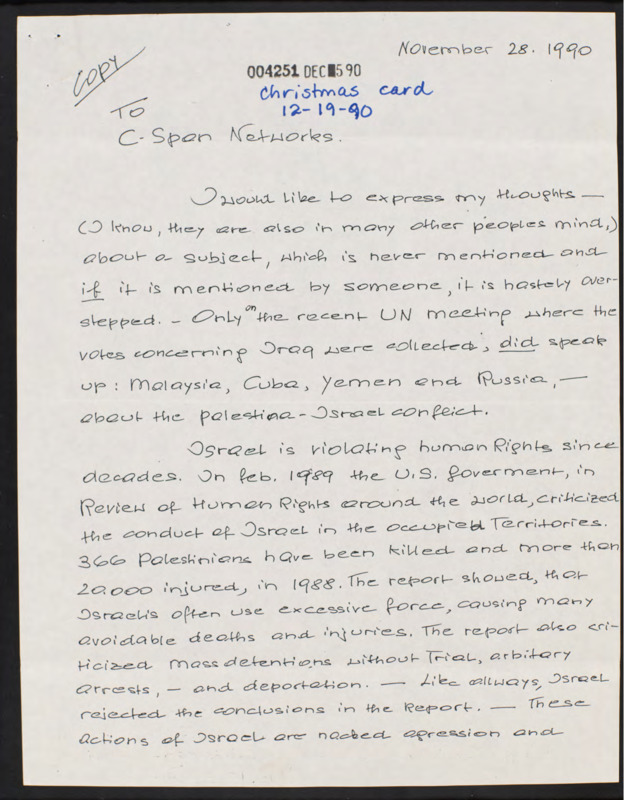 November 28. 1990
COPY
004251 DEC 590
Christmas card
12-19-90
To
C-Span Networks.
I would like to express my thoughts —
(I know, they are also in many other peoples mind,)
about a subject, which is never mentioned and
if it is mentioned by someone, it is hastely over-
stepped. - Only on the recent UN meeting where the
votes concerning Iraq were collected, did speak
up: Malaysia, Cuba, Yemen and Russia, —
about the palestina - Israel conflict.
Israel is violating human Rights since
decades. In feb. 1989 the U.S. Goverment, in
Review of Human Rights around the world, criticized
the conduct of Israel in the occupied Territories.
366 Palestinians have been killed and more than
20.000 injured, in 1988. The report showed, that
Israelis often use excessive force, causing many
avoidable deaths and injuries. The report also cri-
ticized mass detentions without Trial, arbitary
arrests, - and deportation. — Like allways, Israel
rejected the conclusions in the Report. — These
actions of Israel are nacked agression and